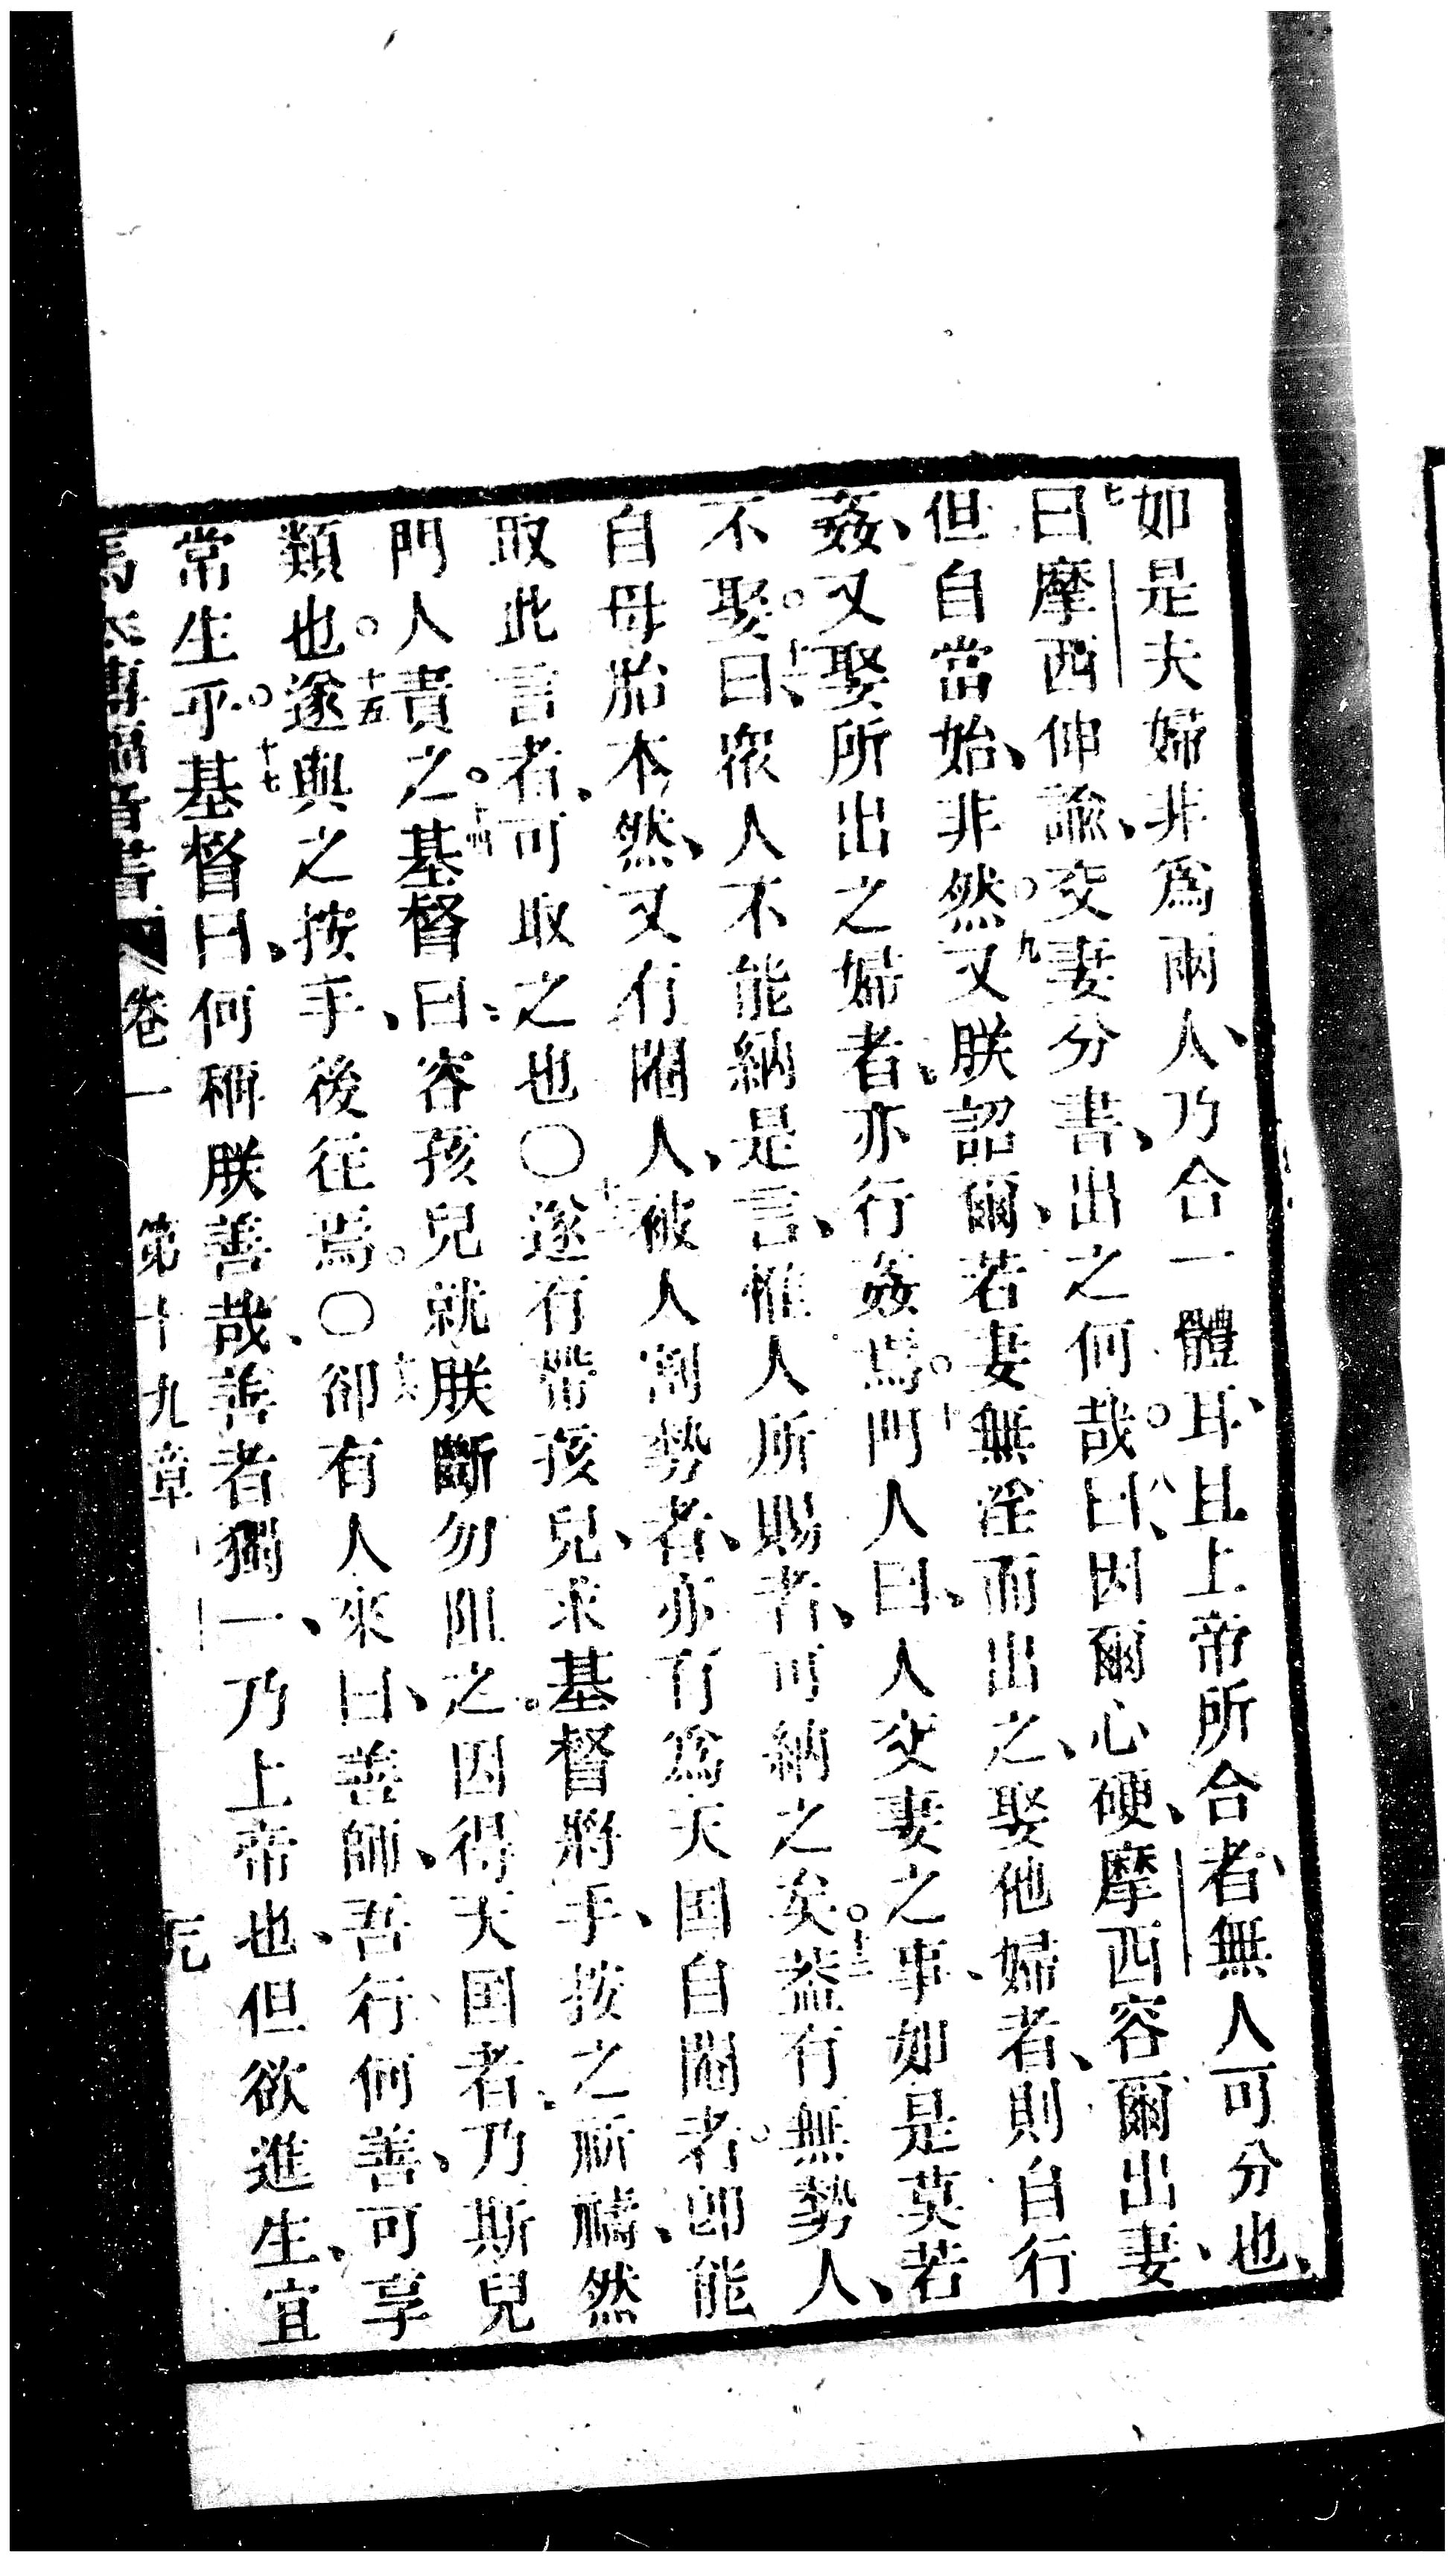 如是夫婦非爲兩人、乃合一體耳、且上帝所合者、無人可分也、
七曰摩西伸諭、交妻分書、出之何哉。八曰、因爾心硬、摩西容爾出妻、
但自當始、非然。九又朕詔爾、若妻無淫而出之、娶他婦者、則自行
姦、又娶所出之婦者、亦行姦焉。十門人曰、人交妻之事、如是莫若
不娶。十一曰、衆人不能納是言、惟人所賜者、可納之矣。十二蓋有無勢人、
自母胎本然、又有閹人、被人割勢者、亦有爲天国自閹者。卽能
取此言者、可取之也〇十三遂有帶孩兒、求基督將手、按之祈禱、然
門人責之。十四基督曰、容孩兒就朕、斷勿阻之。因得天国者、乃斯兒
類也。十五遂與之按手、後往焉。〇十六卻有人來曰、善師、吾行何善、可享
常生乎。十七基督曰、何稱朕善哉、善者獨一、乃上帝也、但欲進生、宜
馬太傳福音書 卷一 第十九章 元